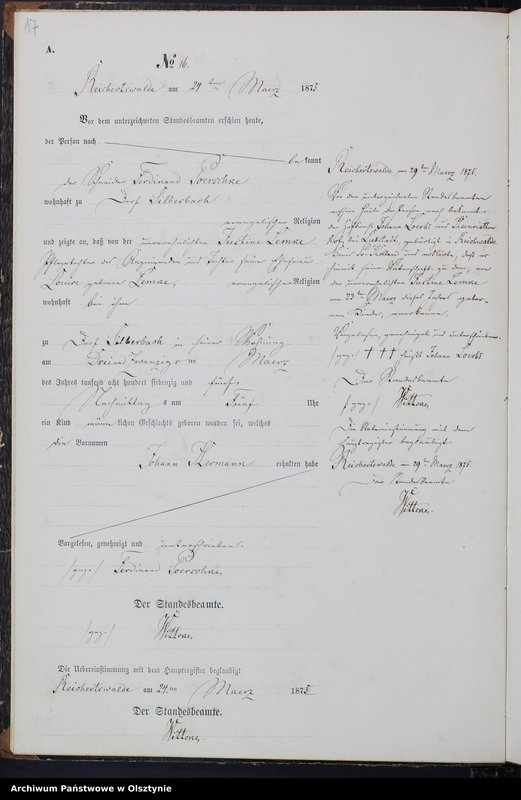 17
A.
No 16.
Reichertswalde am 24ten Maerz 1875
Vor dem unterzeichneten Standesbeamten erschien heute,
der Person nach
bekannt
der Schneider Ferdinand Poerschke
wohnhaft zu Dorf Silberbach
evangelischer Religion
und zeigte an, daß von der unverehelichten Justine Lemke
Louise geborene Lemke, evangelischer Religion
wohnhaft bei ihm
zu Dorf Silberbach in seiner Wohnung
am Drei und Zwanzigsten Maerz
des Jahres tausend acht hundert siebenzig und fünf,
Nachmittags um Fünf Uhr
ein Kind männlichen Geschlechts geboren worden sei, welches
die Vornamen
Johann Hermann erhalten habe
Vorgelesen, genehmigt und unterschrieben.
/gez./ Ferdinand Poerschke,
Der Standesbeamte.
/gez./ Wittoke,
Die Uebereinstimmung mit dem Hauptregister beglaubigt
Reichertswalde am 24ten Maerz 1875
Der Standesbeamte.
Wittoke,
Reichertswalde, am 29ten Maerz 1875.
Vor dem unterzeichneten Standesbeamten
erschien heute, der Person nach bekannt
der unverehelichten Justine Lemke
am 23ten Maerz dieses Jahres
Kinde, anerkenne.
Vorgelesen, genehmigt und unterschrieben
/gez./ † † † Johann Loerbs
Der Standesbeamte
/gez./ Wittoke,
Die Uebereinstimmung mit dem
Hauptregister beglaubigt.
Reichertswalde am 29ten Maerz 1875
Der Standesbeamte
Wittoke,
Archiwum Państwowe w Olsztynie